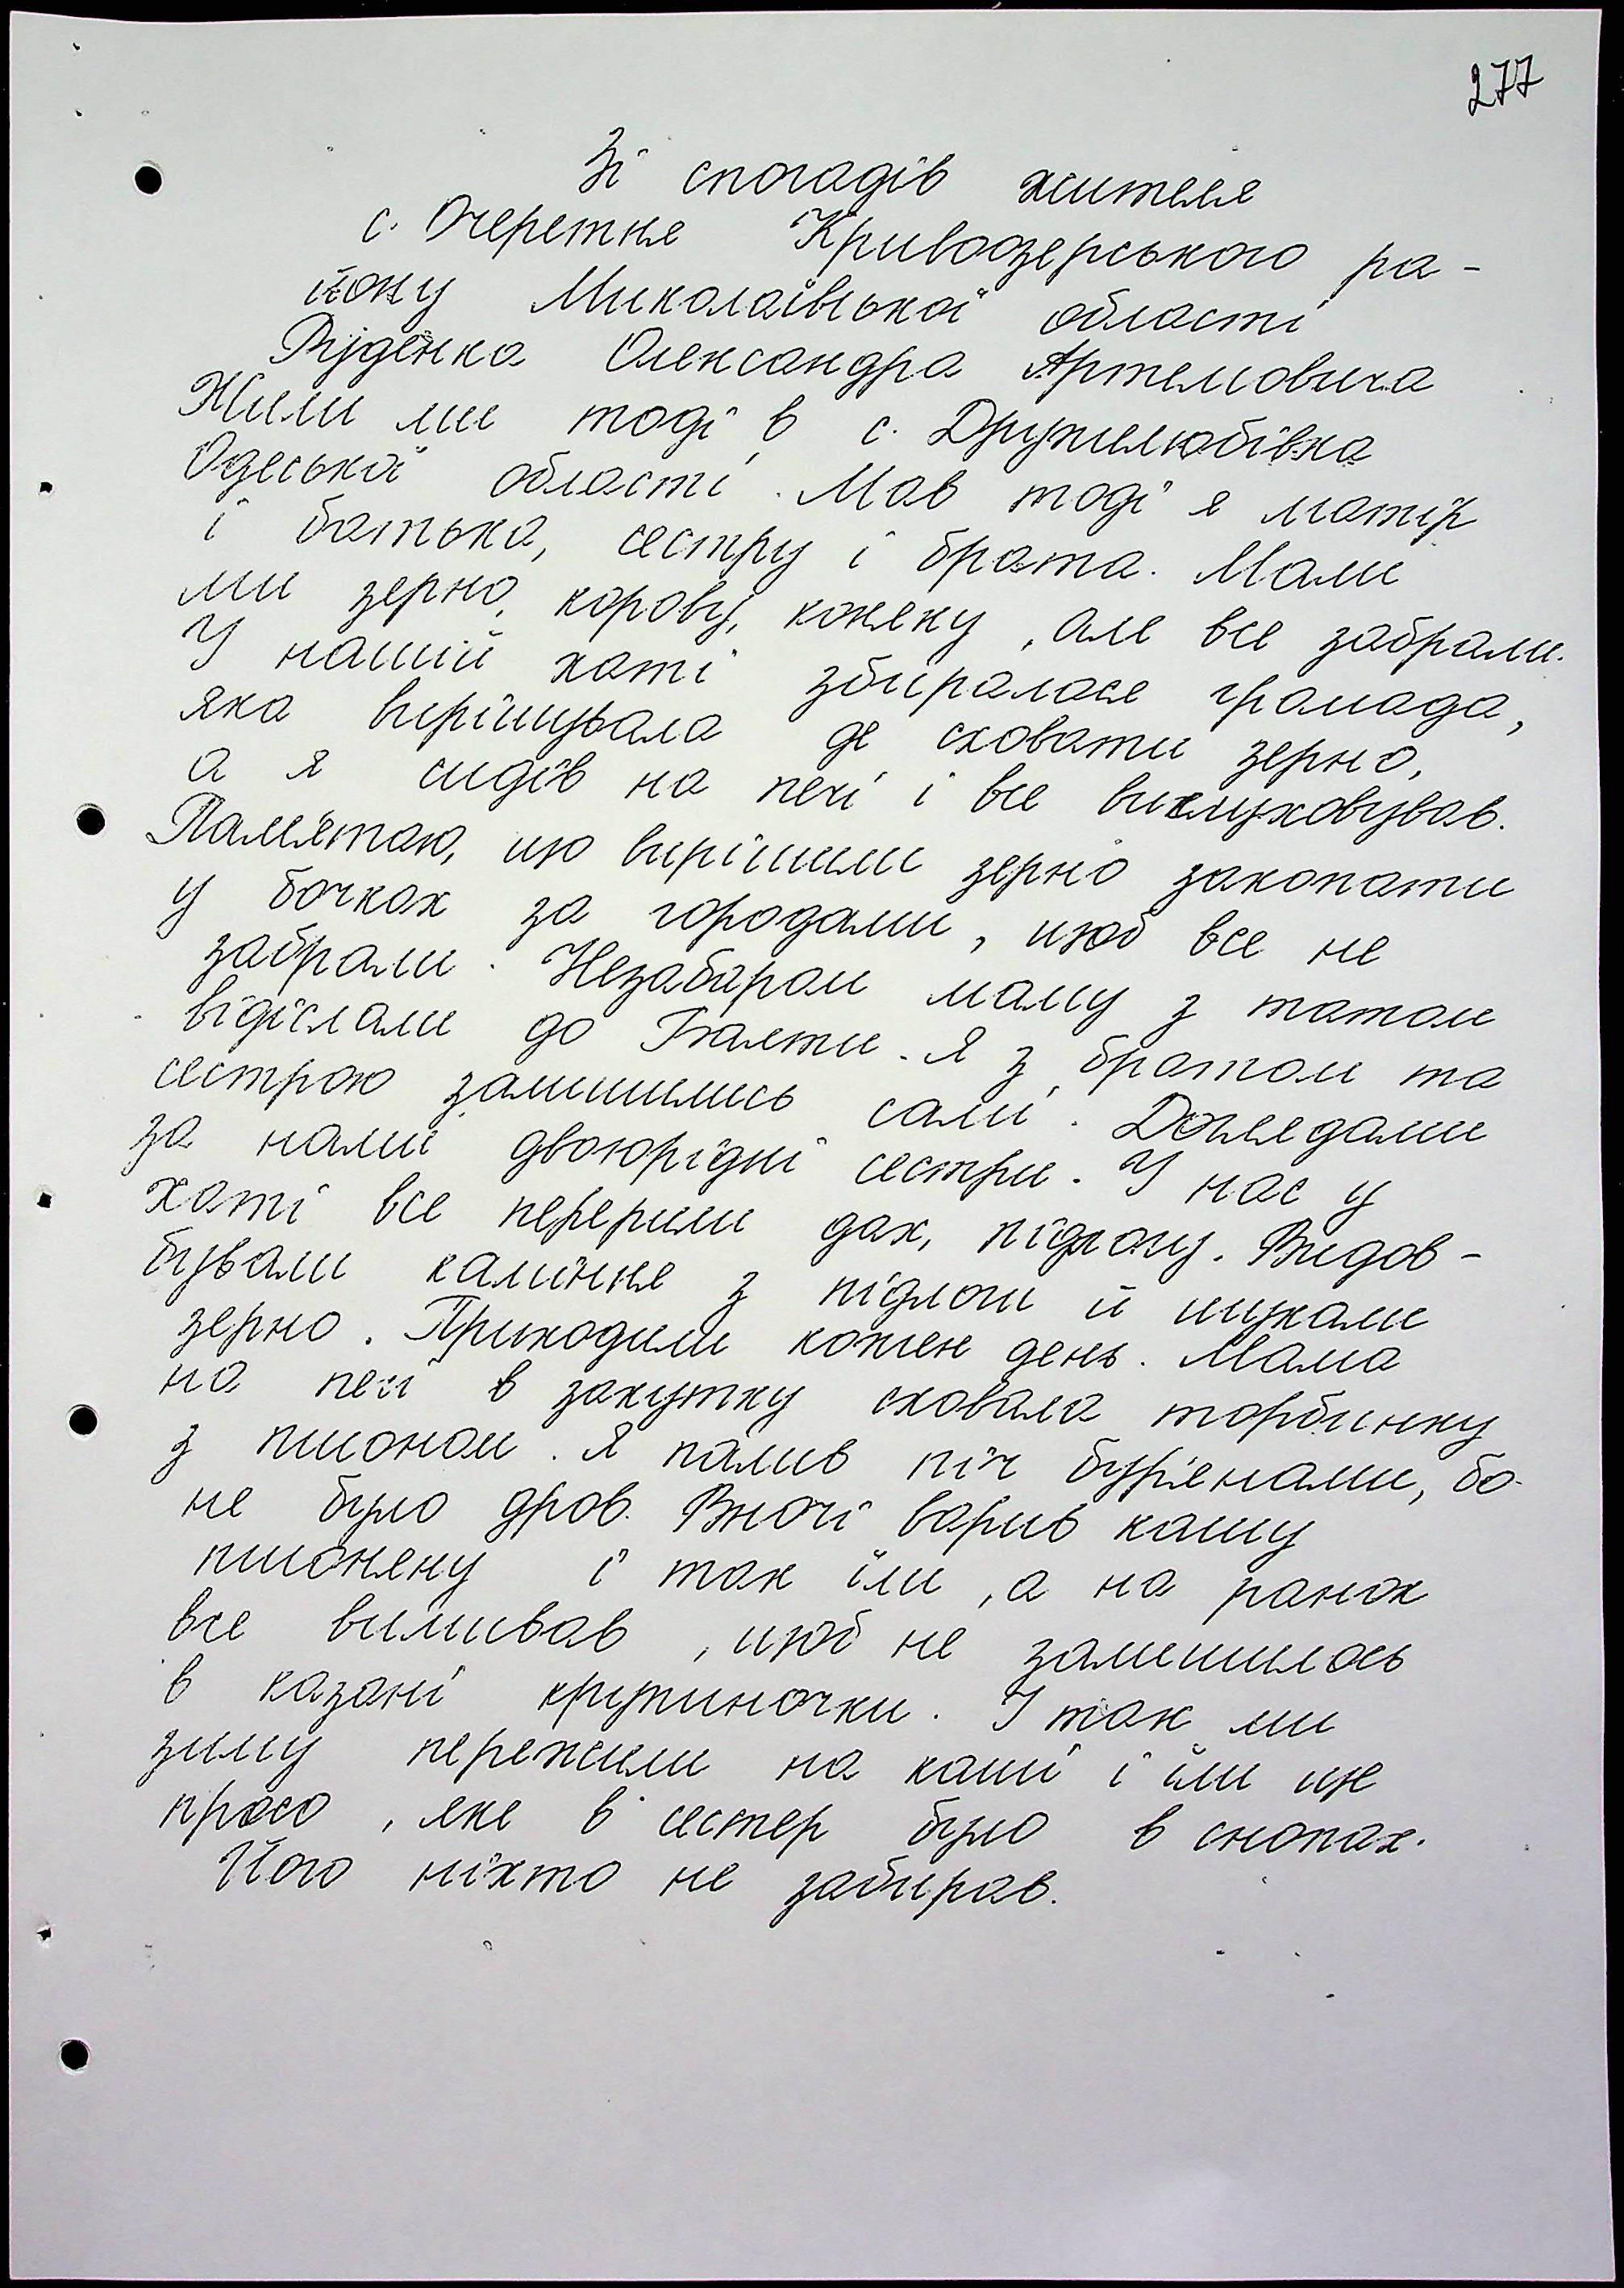 277
Зі спогадів жителя
с. Очеретня Кривоозерського ра-
йону Миколаївської області
Руденка Олександра Артемовича
Жили ми тоді в с. Дружелюбівка
Одеської області. Мав тоді я матір
і батька, сестру і брата. Мали
ми зерно, корову, коняку, але все забрали.
У нашій хаті збиралася громада,
яка вирішувала де сховати зерно,
а я сидів на печі і все вислуховував.
Пам'ятаю, що вирішили зерно закопати
у бочках за городами, щоб все не
забрали. Незабаром маму з татом
відіслали до Балти. Я з братом та
сестрою залишились самі. Доглядали
за нами двоюрідні сестри. У нас у
хаті все перерили дах, підлогу. Видов-
бували каміння з підлоги й шукали
зерно. Приходили кожен день. Мама
на печі в закутку сховала торбинку
з пшоном. Я палив піч бур'янами, бо
не було дров. Вночі варив кашу
пшоняну і так їли, а на ранок
все вимивав, щоб не залишилось
в казані крупиночки. І так ми
зиму пережили на каші і їли ще
просо, яке в сестер було в снопах.
Його ніхто не забирав.